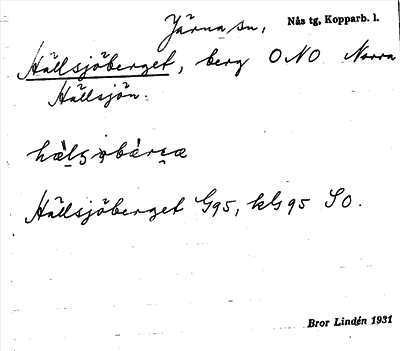 Järna sn, Nås tg, Kopparb. l.
Hällsjöberget, berg ONO Norra
Hällsjön.
Hällsjöberget G95, kls95 SO.
Bror Lindén 1931